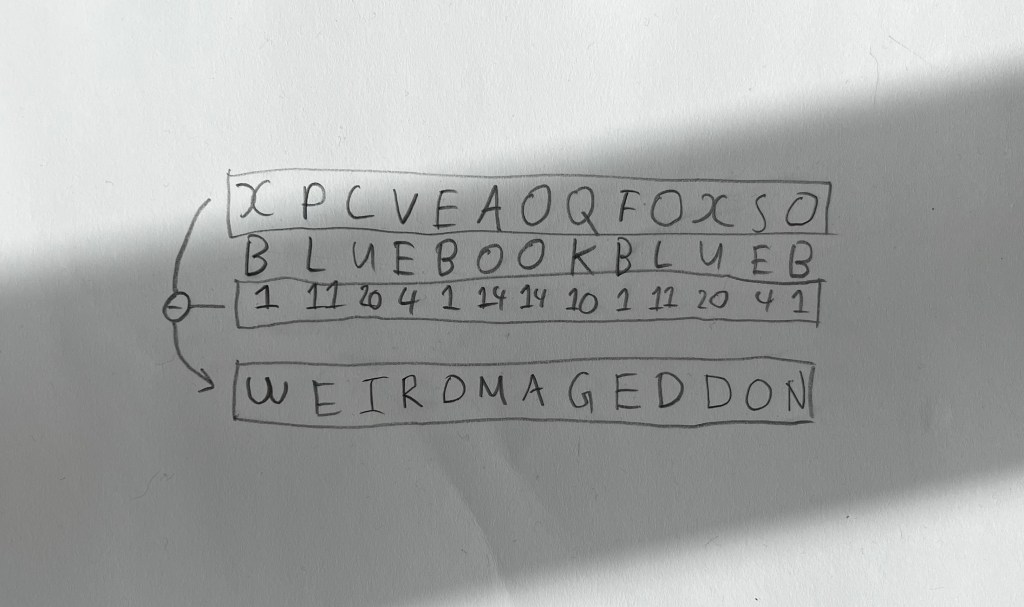 X P C V E A O Q F O X S O
B L U E B O O K B L U E B
1 11 20 4 1 14 14 10 1 11 20 4 1
W E I R D M A G E D D O N